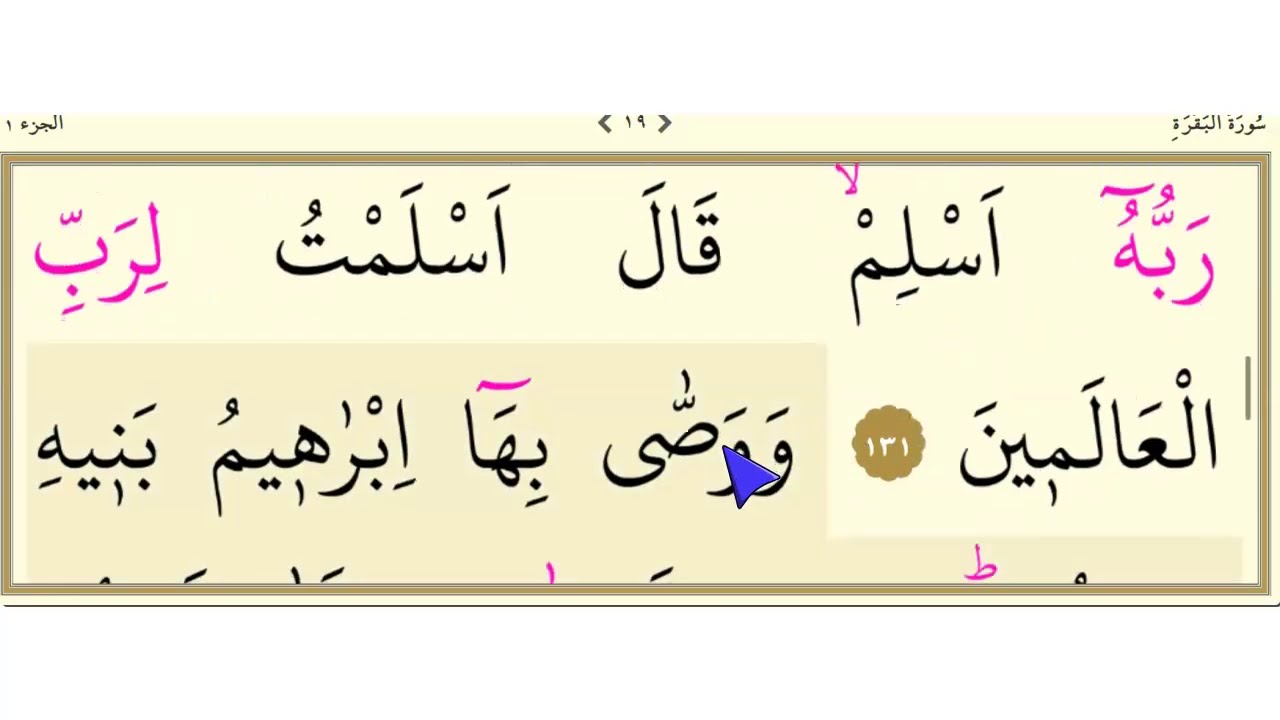 سُورَةُ البَقَرَةِ ١٩ الجزء ١
رَبُّهُٓ اَسْلِمْ ۙ قَالَ اَسْلَمْتُ لِرَبِّ
الْعَالَمٖينَ ١٣١ وَوَصّٰى بِهَٓا اِبْرٰهٖيمُ بَنٖيهِ